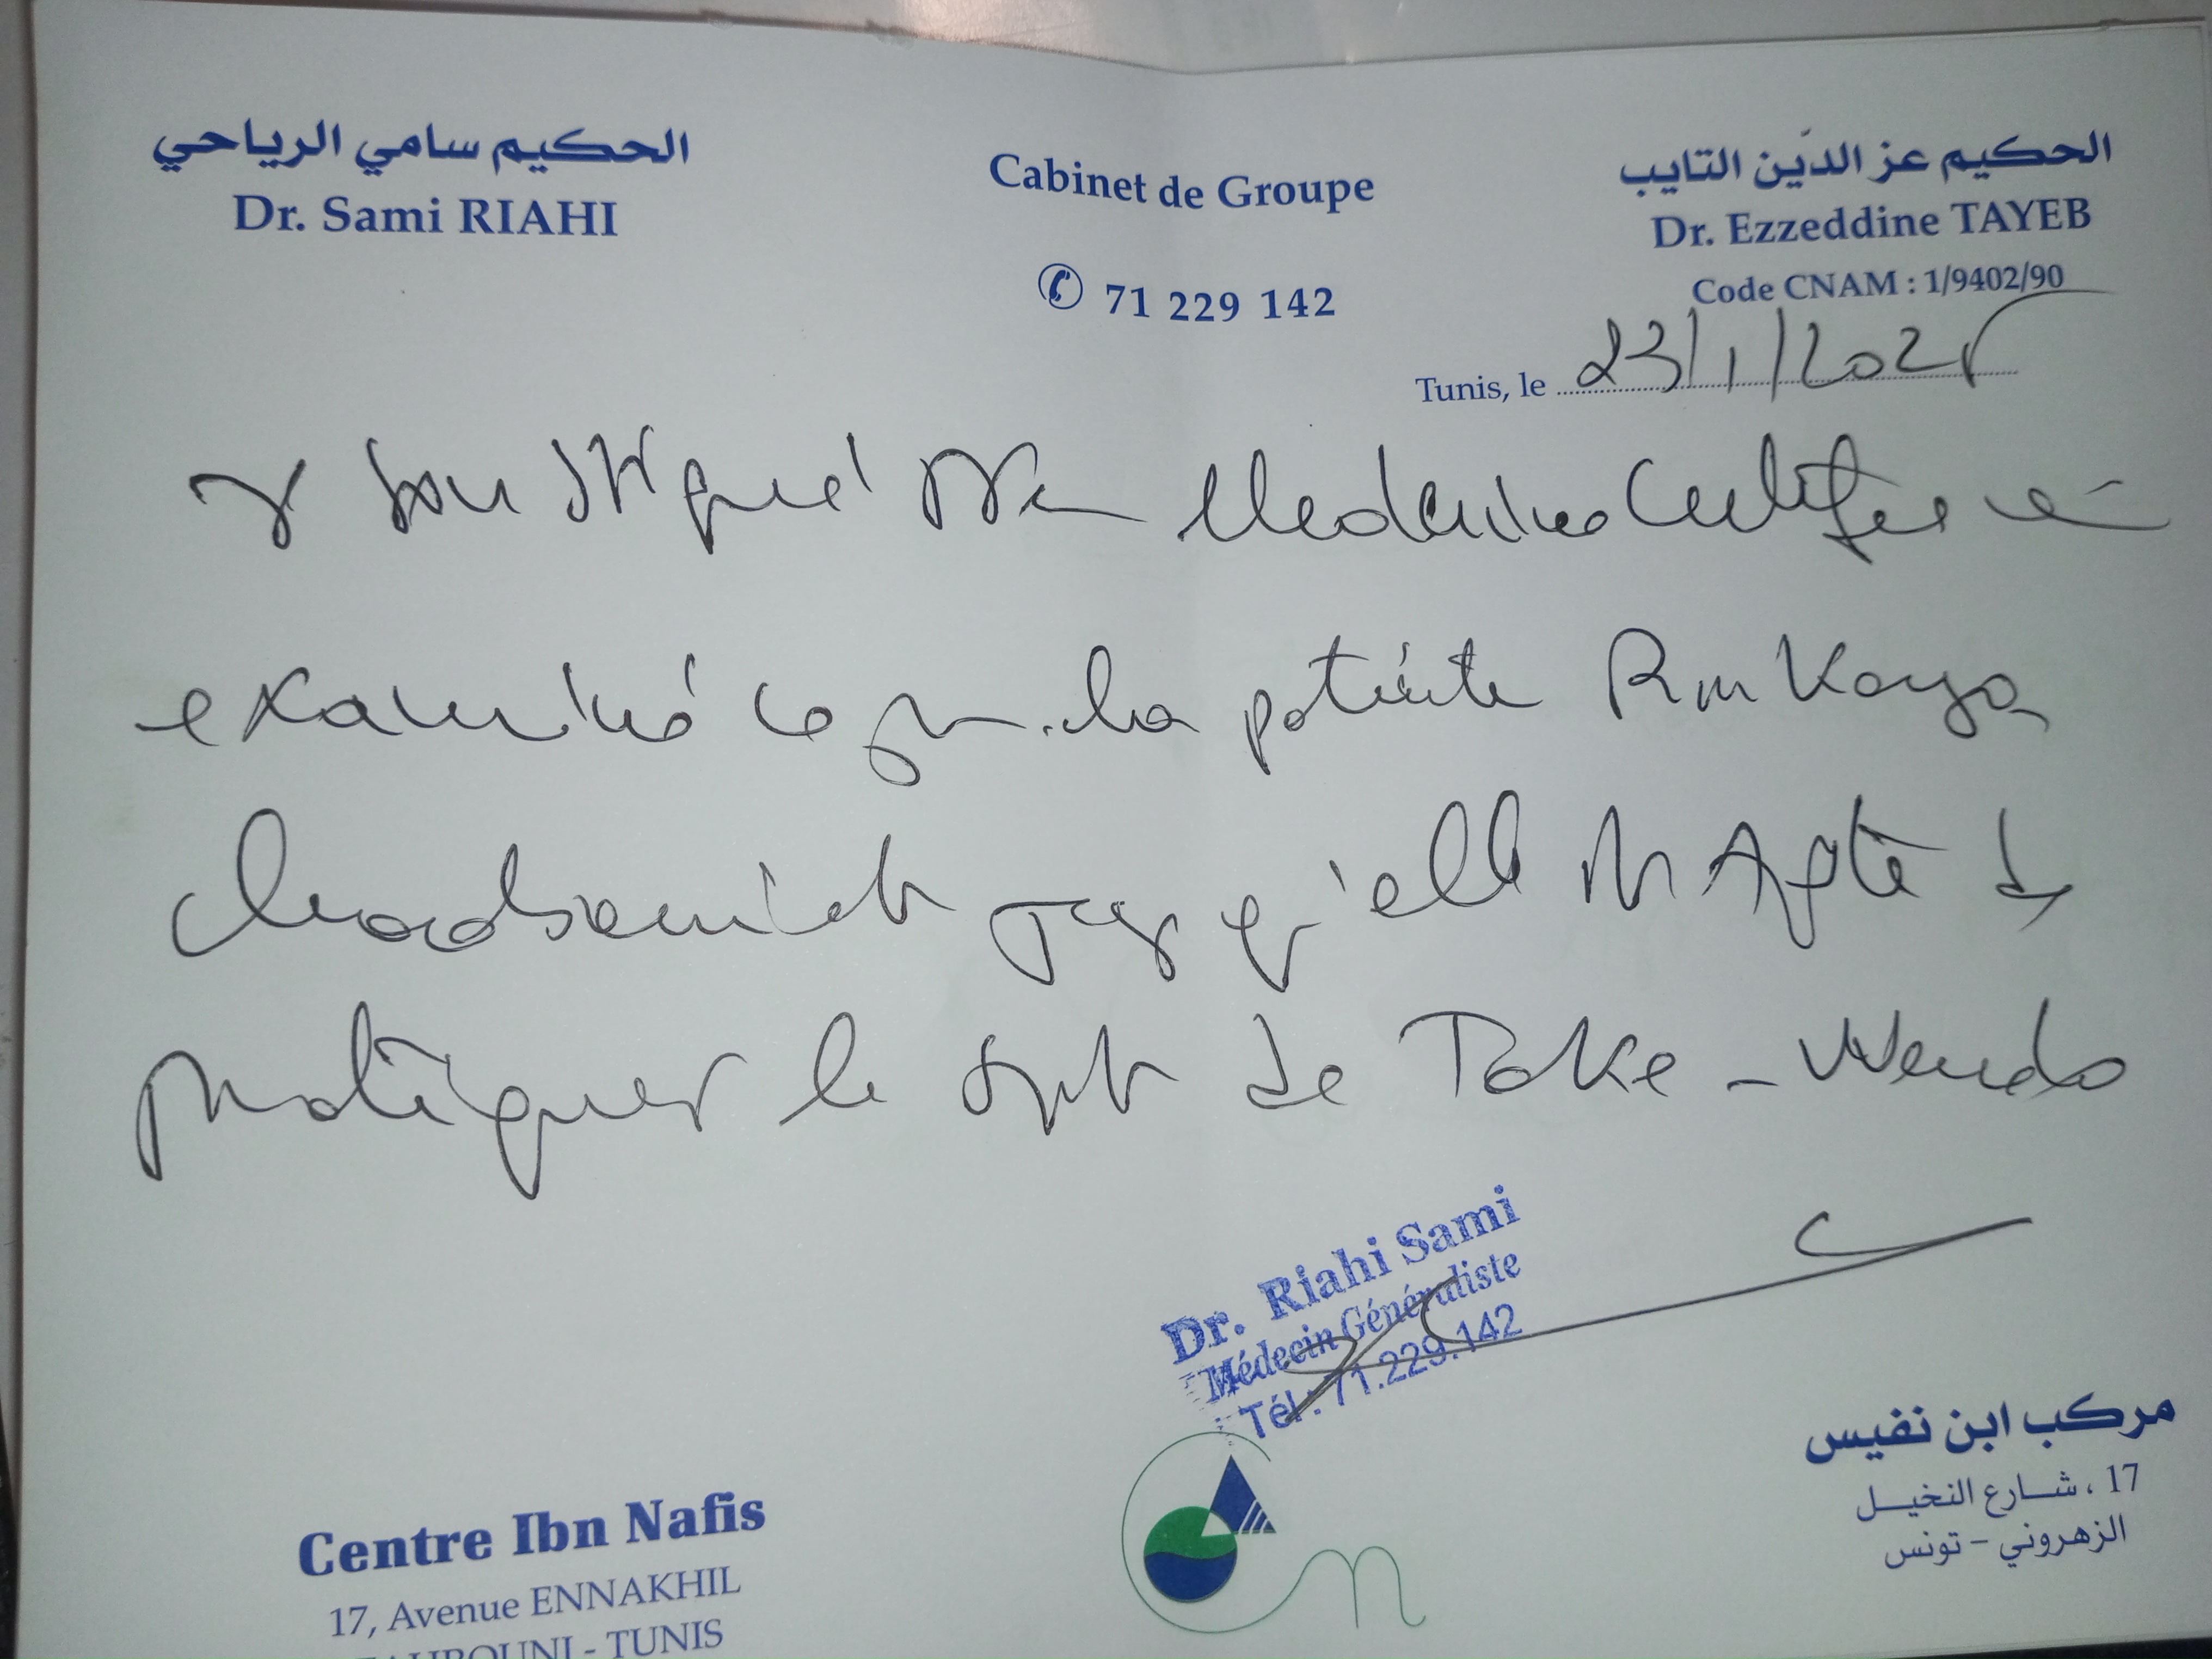 الحكيم سامي الرياحي
Dr. Sami RIAHI
Cabinet de Groupe
71 229 142
الحكيم عز الدّين التايب
Dr. Ezzeddine TAYEB
Code CNAM : 1/9402/90
Tunis, le 23/1/2025
Je soussigné Dr en Médecine Certifie avoir
examiné ce jour la patiente Rm Kaya
que qu'elle est Apte à
pratiquer le sport de Take-Wendo
Dr. Riahi Sami
Médecin Généraliste
Tél : 71.229.142
Centre Ibn Nafis
17, Avenue ENNAKHIL
- TUNIS
مركب ابن نفيس
17 ، شارع النخيل
الزهروني - تونس